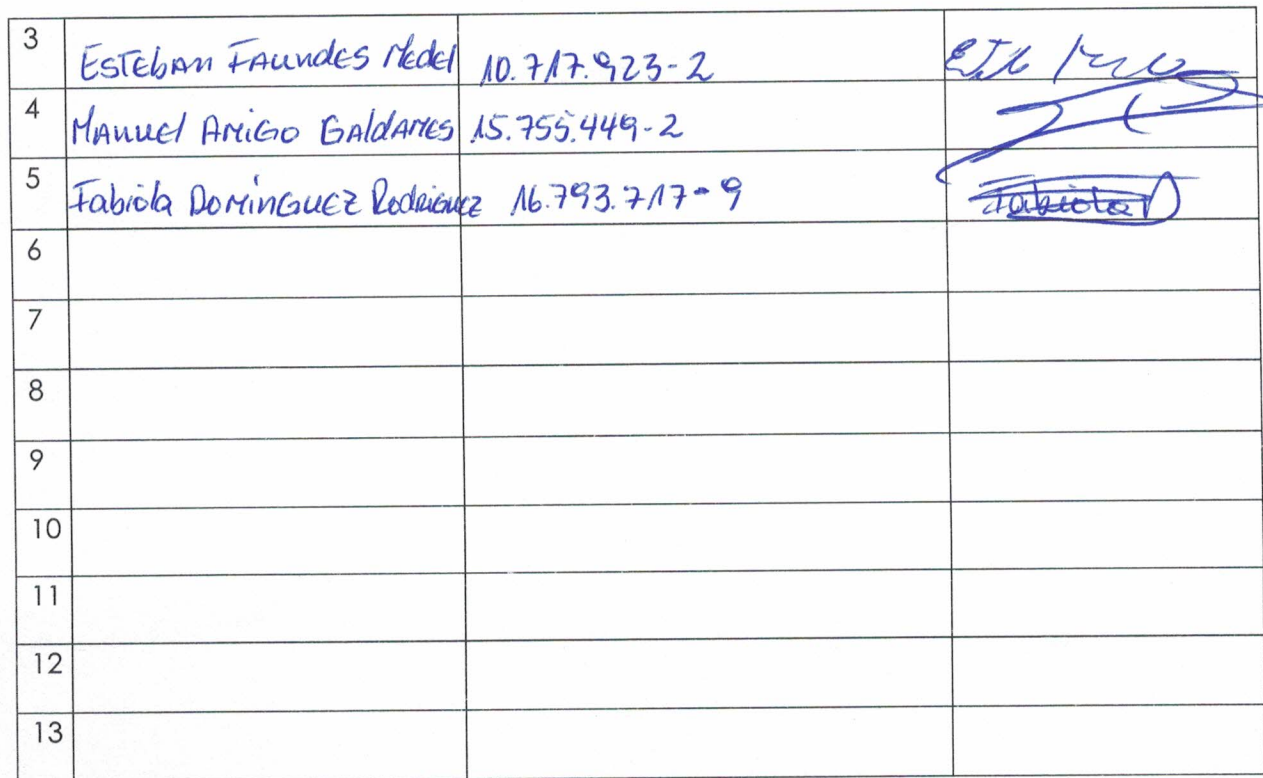 3 ESTEBAN FAUNDES MEDEL 10.717.923-2
4 MANUEL AMIGO GALDAMES 15.755.449-2
5 Fabiola DOMÍNGUEZ RODRIGUEZ 16.793.717-9 Fabiola D
6
7
8
9
10
11
12
13